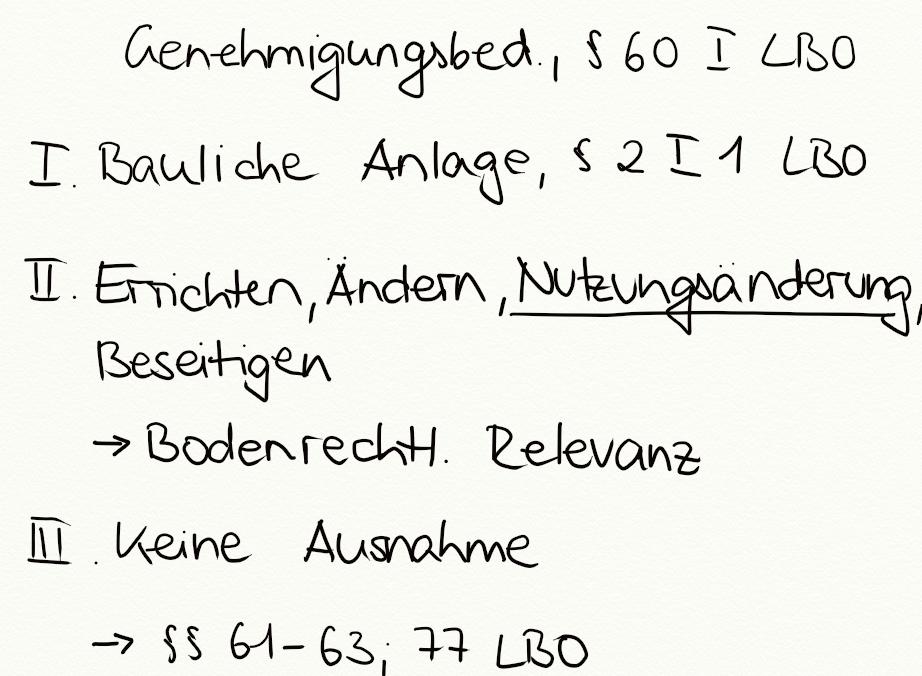 Genehmigungsbed., § 60 I LBO
I. Bauliche Anlage, § 2 I 1 LBO
II. Errichten, Ändern, Nutzungsänderung,
Beseitigen
→ Bodenrechtl. Relevanz
III. Keine Ausnahme
→ §§ 61-63; 77 LBO